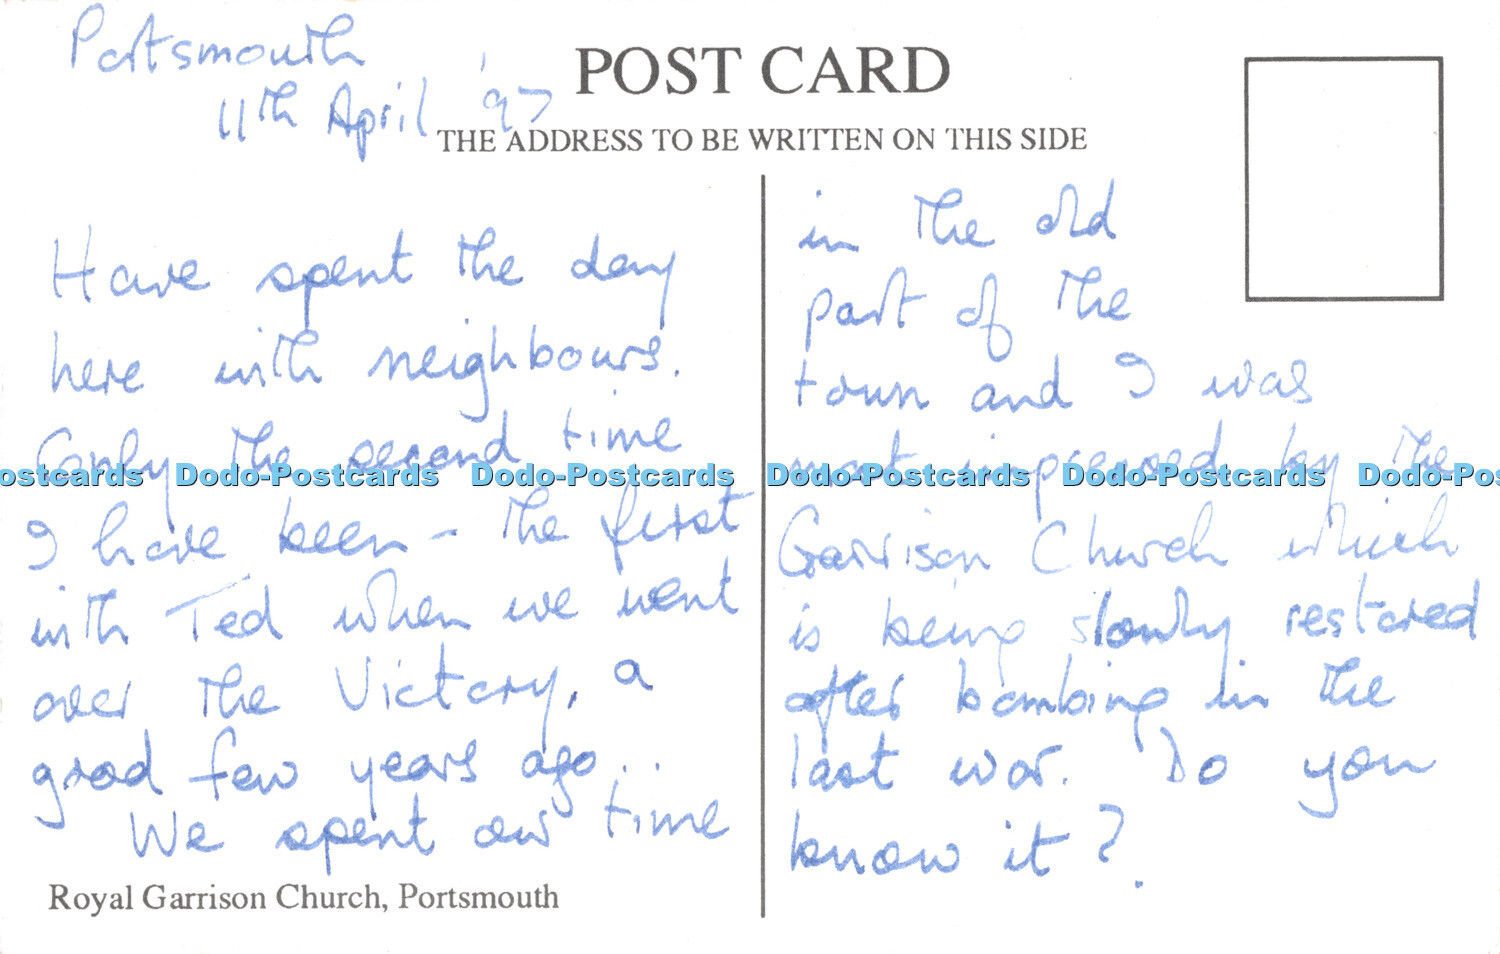 Portsmouth
11th April '97
POST CARD
THE ADDRESS TO BE WRITTEN ON THIS SIDE
Have spent the day
here with neighbours.
Only the second time
I have been – the first
with Ted when we went
over the Victory, a
good few years ago...
We spent our time
Royal Garrison Church, Portsmouth
in the old
part of the
town and I was
most impressed by the
Garrison Church which
is being slowly restored
after bombing in the
last war. Do you
know it?
Dodo-Postcards Dodo-Postcards Dodo-Postcards Dodo-Postcards